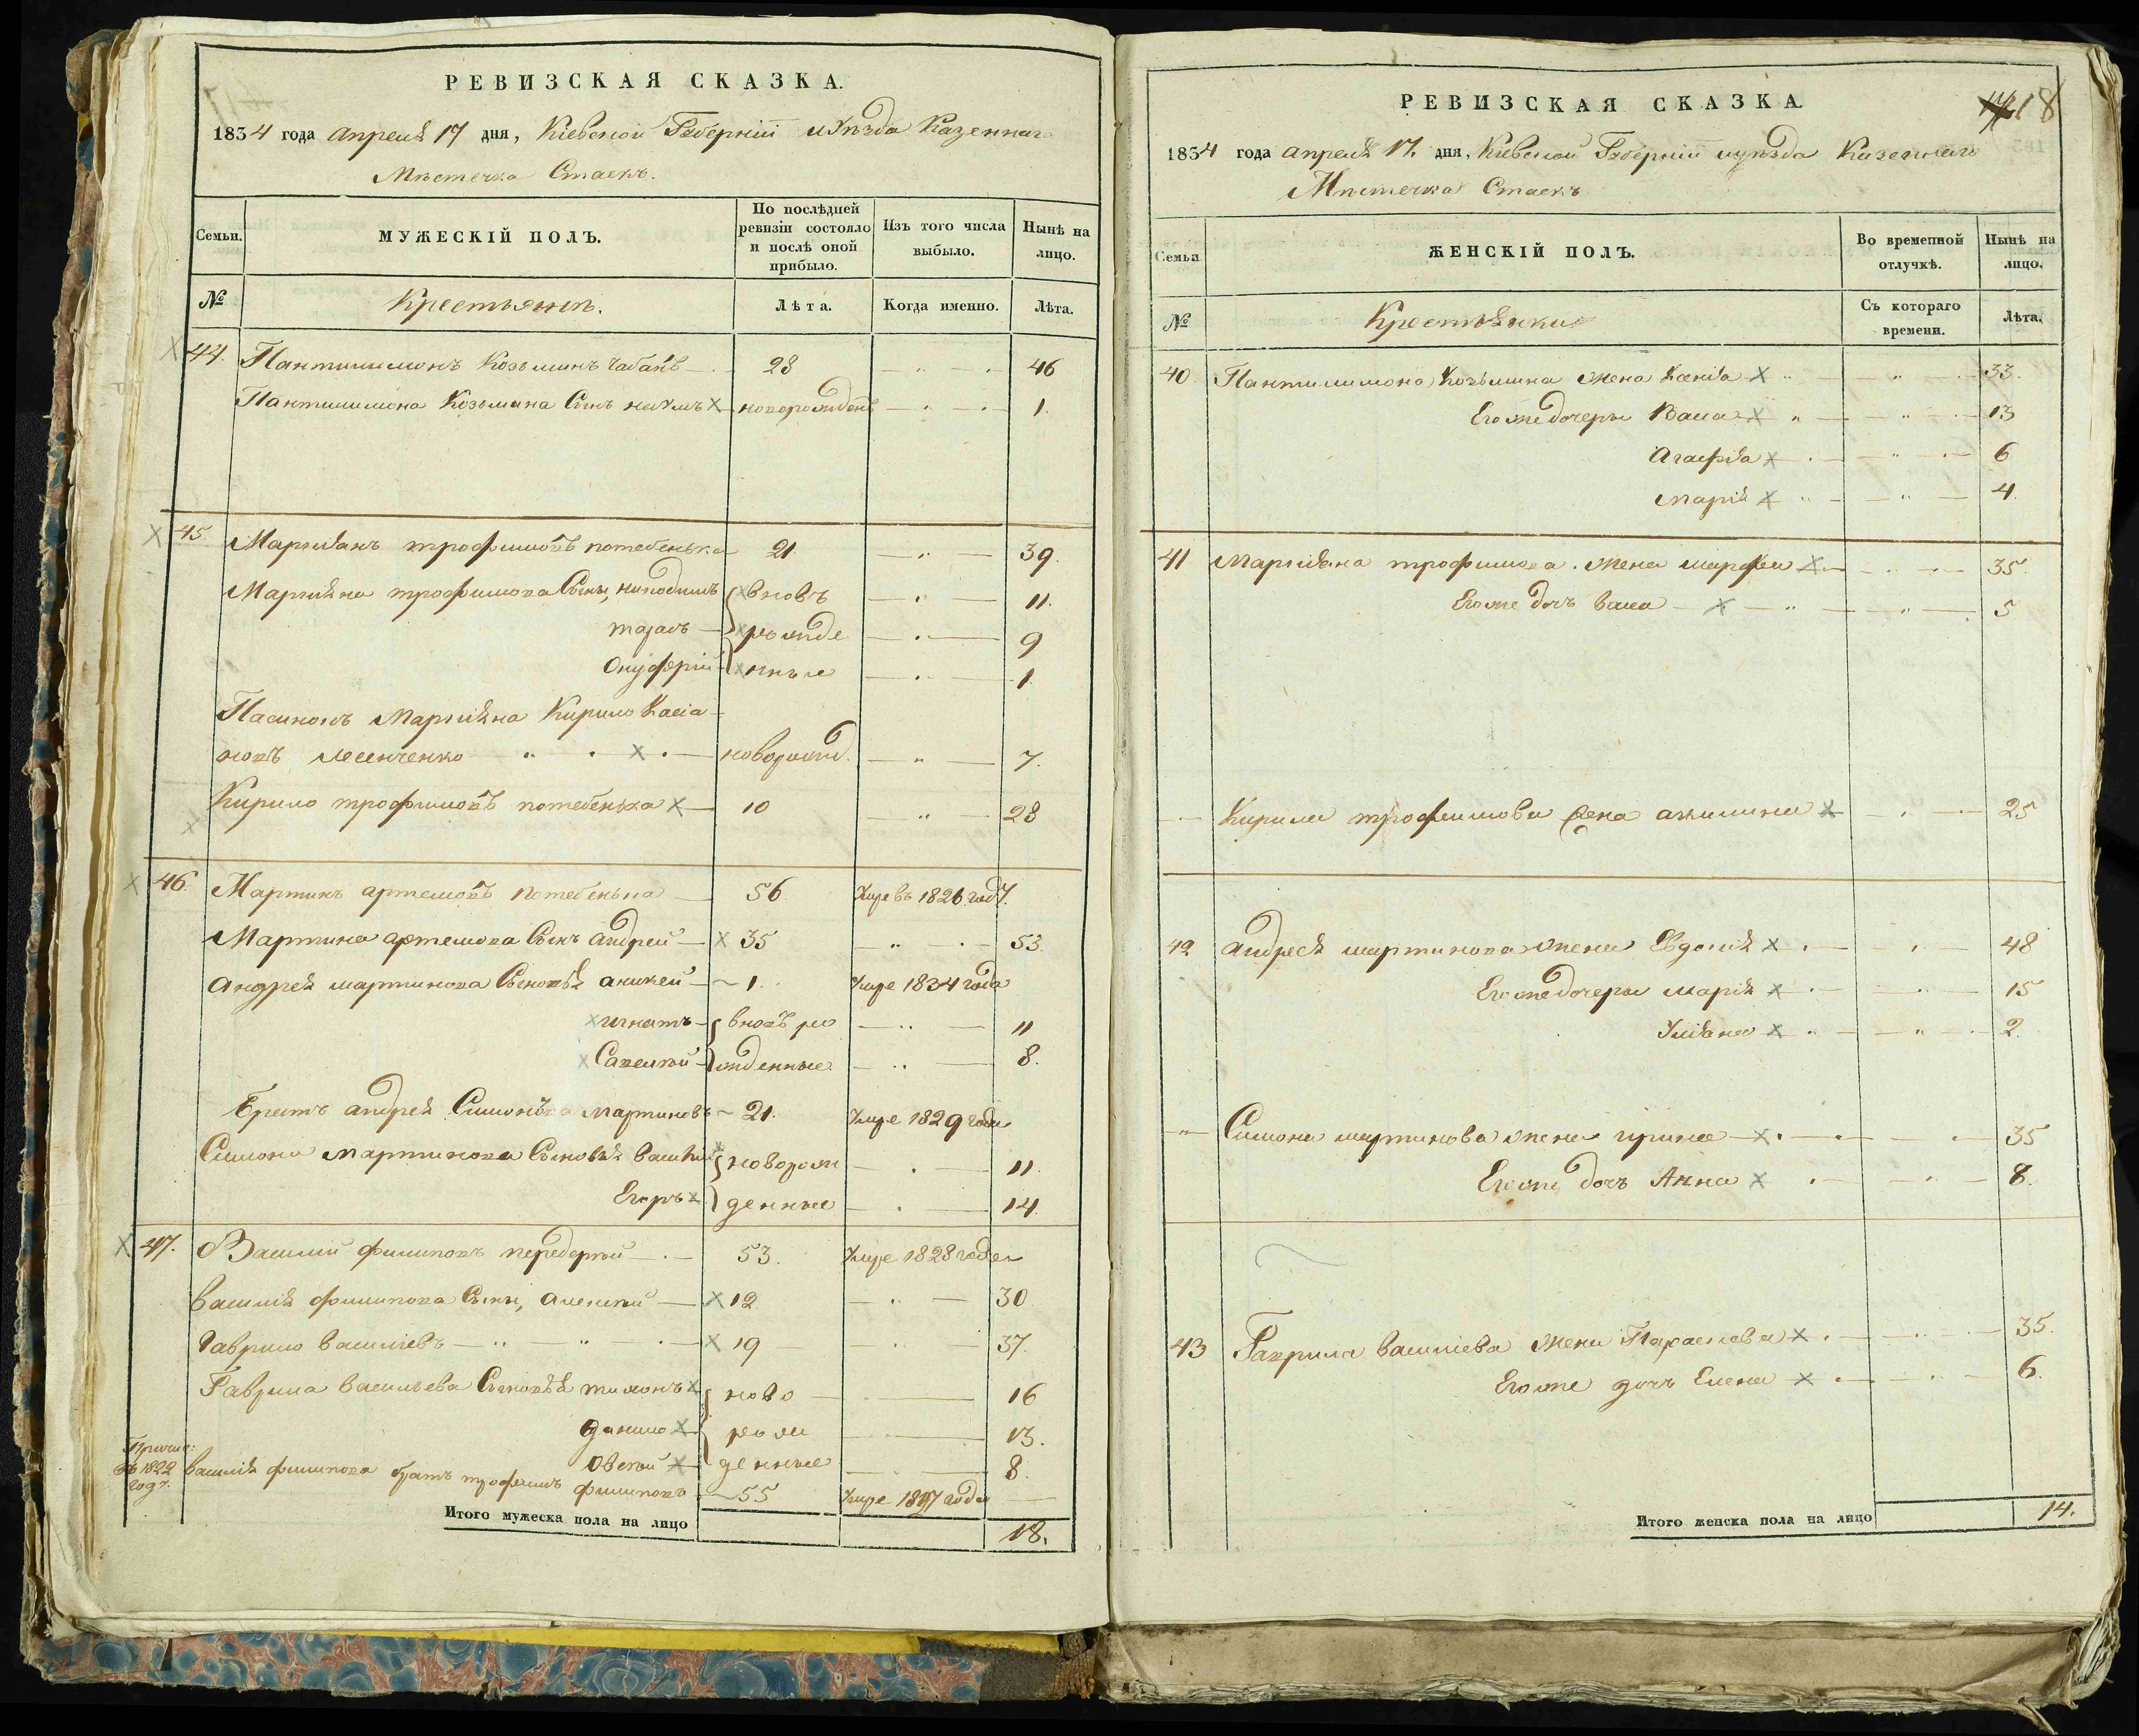 РЕВИЗСКАЯ СКАЗКА.
1834 года апреля 17 дня, Кіевской Губерніи и уѣзда Казеннаго
Мѣстечка Стаекъ.
Семьи. МУЖЕСКІЙ ПОЛЪ. По послѣдней ревизіи состояло и послѣ оной прибыло. Изъ того числа выбыло. Нынѣ на лицо.
№ Крестьянѣ. Лѣта. Когда именно. Лѣта.
44. Пантилимонъ Козьминъ Чабанъ 28 46
Пантилимона Козьмина Сынъ наумъ новорожденъ 1.
45 Маркіянъ трофимовъ потебенька 21 39.
Маркіяна трофимова Сыны, никодимъ вновъ 11.
рожде 9
Онуфрій нные 1
Пасинокъ Маркіяна Кирило Касіа-
новъ новорожд. 7.
Кирило трофимовъ потебенька 10 28
46. Мартинъ артемовъ потебенька 56 Умре въ 1826 году.
Мартина артемова Сынъ андрей 35 53.
андрея мартинова Сыновья аникей 1. Умре 1834 года
игнатъ вновъ ро 11
Савелий жденные 8.
Братъ андрея Симонъ Мартиновъ 21. Умре 1829 года
Симона Мартинова Сыновья Василий новорож 11.
Егоръ денные 14.
47. Василий филиповъ передерий 53. Умре 1828 года
василія филипова Сыны, алексий 12 30.
Гаврило василіевъ 19 37.
Гаврила васильева Сыновья тимонъ ново 16
данило рож 13.
Овсий денные 8.
Причис:
въ 1822
году.
василія филипова братъ трофимъ филиповъ 55 Умре 1827 года
Итого мужеска пола на лицо 18.
РЕВИЗСКАЯ СКАЗКА. 18
1834 года апреля 17. дня, Кіевской Губерніи и уѣзда Казеннаго
Мѣстечка Стаекъ
Семьи ЖЕНСКІЙ ПОЛЪ. Во временной отлучкѣ. Нынѣ на лицо.
№ Крестьянки Съ котораго времени. Лѣта.
40. Пантилимона Козьмина жена Ксенія 33.
Егоже дочеры Васа 13
Агафія 6
Марія 4.
41 Маркіяна трофимова жена марфа 35.
Егоже дочъ васа 5
Кирила трофимова жена акилина 25
42 андрея мартинова жена Евдокія 48
Егоже дочеры марія 15
Уліяна 2.
Симона мартинова жена ирина 35
Егоже дочъ Анна 8.
43 Гаврила василіева жена Параскева 35.
Егоже дочъ Елена 6.
Итого женска пола на лицо 14.